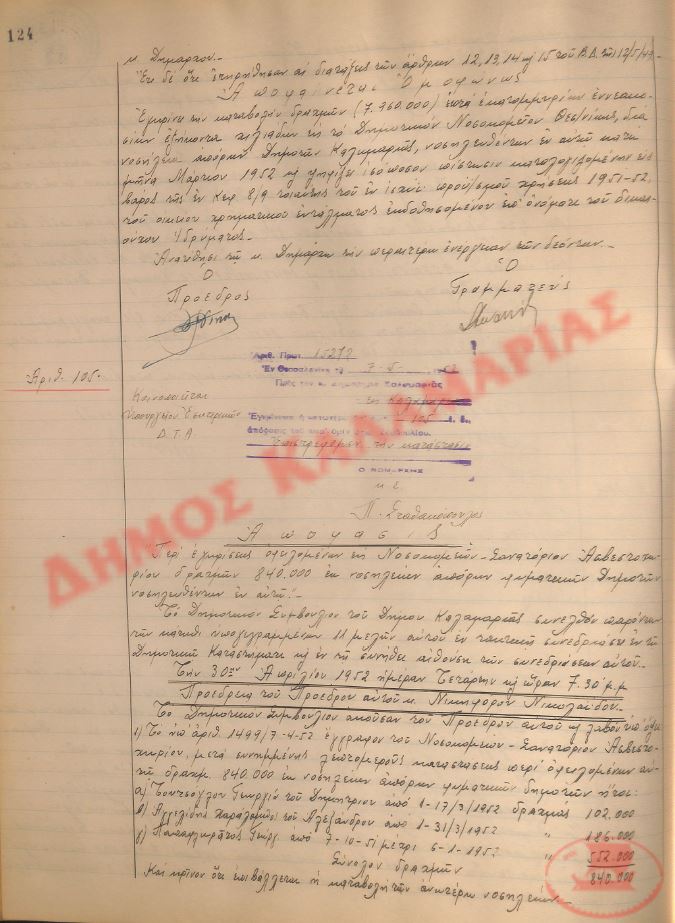 124
κ. Δημάρχου.-
Ἔτι δέ ὅτι ἐτηρήθησαν αἱ διατάξεις τῶν ἄρθρων 12, 13, 14 καὶ 15 τοῦ Β.Δ. τῆς 12/5/49
Ἀποφαίνεται Ὁμοφώνως
Ἐγκρίνει τὴν καταβολὴν δραχμῶν (7.960.000) ἑπτὰ ἑκατομμυρίων ἐννεακο-
σίων ἑξήκοντα χιλιάδων εἰς τὸ Δημοτικὸν Νοσοκομεῖον Θεσ/νίκης, διὰ
νοσήλεια ἀπόρων Δημοτῶν Καλαμαριᾶς, νοσηλευθέντων ἐν αὐτῷ κατὰ
μῆνα Μάρτιον 1952 καὶ ψηφίζει ἰσόποσον πίστωσιν καταλογιζομένην εἰς
βάρος τῆς ἐν Κεφ. 8/9 τοιαύτης τοῦ ἐν ἰσχύϊ προϋπ/σμοῦ χρήσεως 1951-52,
τοῦ οἰκείου χρηματικοῦ ἐντάλματος ἐκδοθησομένου ἐπ' ὀνόματι τοῦ δικαι-
ούχου Ἱδρύματος.-
Ἀνατίθησι τῷ κ. Δημάρχῳ τὴν περαιτέρω ἐνέργειαν τῶν δεόντων.-
Ὁ
Πρόεδρος
Ὁ
Γραμματεύς
Ἀριθ. Πρωτ. 15272
Ἐν Θεσσαλονίκῃ τῇ 7-5-1952
Πρὸς τὸν κ. Δήμαρχον Καλαμαριᾶς
Ἀριθ. 105.
Κοινοποιεῖται
Ὑπουργεῖον Ἐσωτερικῶν
Δ.Τ.Α
Ἐγκρίνεται 105 ἐ. ἔ.
ἀπόφασις τοῦ Συμβουλίου.
Ἐπιστρέφομεν τὴν κατάστασιν
Ὁ ΝΟΜΑΡΧΗΣ
κ.ε.
Π. Σταθακόπουλος
ΔΗΜΟΣ ΚΑΛΑΜΑΡΙΑΣ
Ἀπόφασις
Περὶ ἐγκρίσεως ὀφειλομένων εἰς Νοσοκομεῖον-Σανατόριον Ἀσβεστοχω-
ρίου δραχμῶν 840.000 ἐκ νοσηλείων ἀπόρων φυματικῶν Δημοτῶν
νοσηλευθέντων ἐν αὐτῷ.-
Τὸ Δημοτικὸν Συμβούλιον τοῦ Δήμου Καλαμαριᾶς συνελθὸν παρόντων
τῶν κάτωθι ὑπογεγραμμένων 11 μελῶν αὐτοῦ ἐν τακτικῇ συνεδριάσει ἐν τῷ
Δημοτικῷ Καταστήματι καὶ ἐν τῇ συνήθει αἰθούσῃ τῶν συνεδριάσεων αὐτοῦ.-
Τὴν 30ην Ἀπριλίου 1952 ἡμέραν Τετάρτην καὶ ὥραν 7.30 μ.μ
Προεδρείᾳ τοῦ Προέδρου αὐτοῦ κ. Νικηφόρου Νικολαΐδου.-
Τὸ Δημοτικὸν Συμβούλιον ἀκοῦσαν τοῦ Προέδρου αὐτοῦ καὶ λαβὸν ὑπ' ὄψει
1) Τὸ ὑπ' ἀριθ. 1499/7-4-52 ἔγγραφον τοῦ Νοσοκομείου-Σανατορίου Ἀσβεστο-
χωρίου, μετὰ συνημμένης λεπτομεροῦς καταστάσεως περὶ ὀφειλομένων αὐ-
τῷ δραχμ. 840.000 ἐκ νοσηλείων ἀπόρων φυματικῶν δημοτῶν ἤτοι:
α) Τουτσόγλου Γεωργίου τοῦ Δημητρίου ἀπὸ 1-17/3/1952 δραχμάς 102.000
β) Ἀγγελίδης Χαράλαμπος τοῦ Ἀλεξάνδρου ἀπὸ 1-31/3/1952 " 186.000
γ) Παπαγκυρᾶτος Γεώργ. ἀπὸ 7-10-51 μέχρι 6-1-1952 " 552.000
Σύνολον δραχμῶν " 840.000
Καὶ κρῖνον ὅτι ἐπιβάλλεται ἡ καταβολὴ τῶν ἀνωτέρω νοσηλείων.-